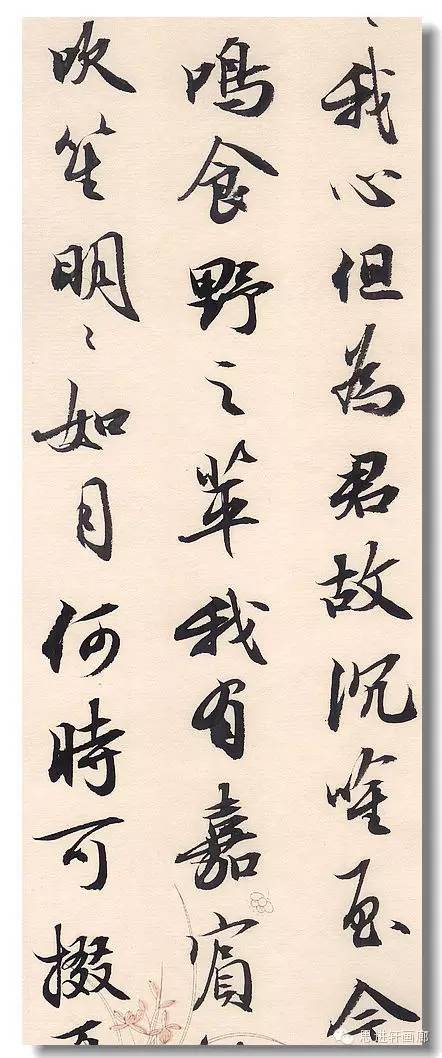 〻我心但為君故沉唫至今
鳴食野之苹我有嘉賓
吹笙明〻如月何時可掇
思进轩画廊